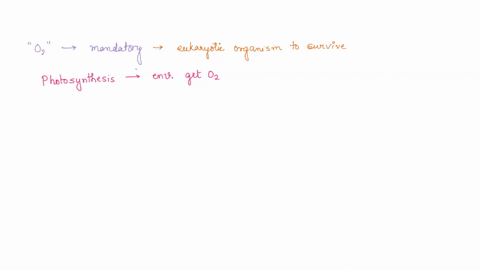 "O₂" → mandatory → eukaryotic organism to survive
Photosynthesis → env. get O₂